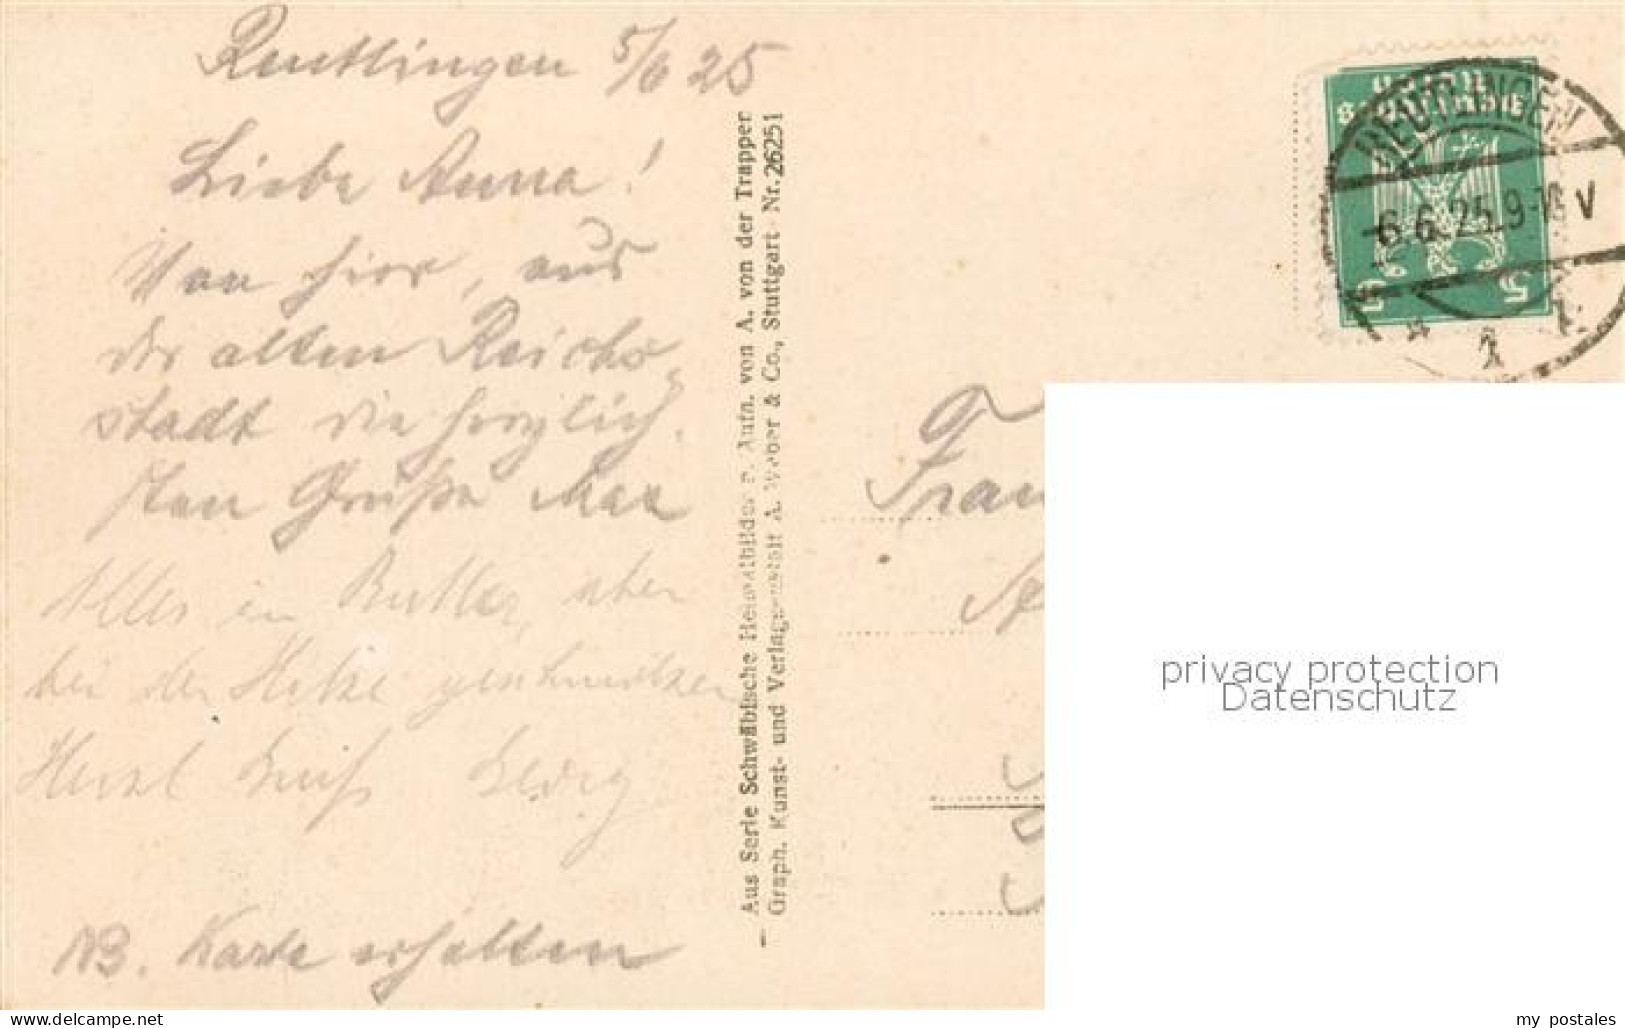 Reutlingen 5/6 25
Liebe Anna!
Von hier, aus
der alten Reichs
stadt die herzlich
sten Grüße Max
Alles in Butter, aber
bei der Hitze geschmolzen
Herzl Gruß Georg
NB. Karte erhalten
Aus Serie Schwäbische Heimatbilder n. Aufn. von A. von der Trapper
Graph. Kunst- und Verlagsanstalt A. Weber & Co., Stuttgart · Nr. 26251
Deutsches
Reich
5 5
REUTLINGEN
-6.6.25.9-10 V
Frau
privacy protection
Datenschutz
my postales.com